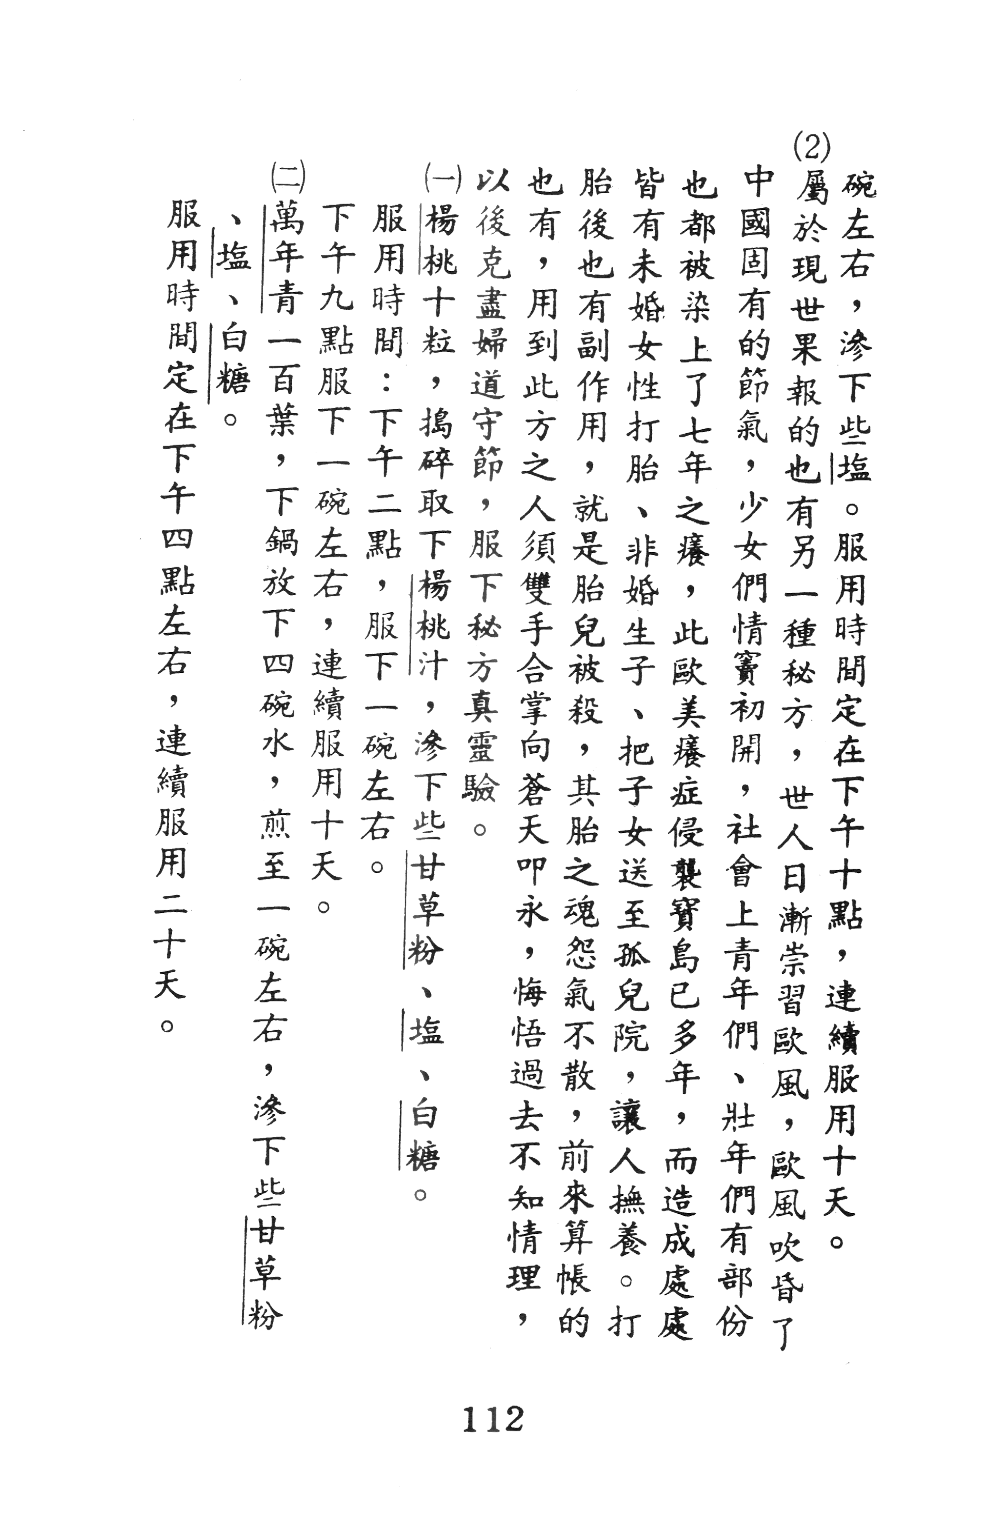 碗左右，滲下些塩。服用時間定在下午十點，連續服用十天。
(2)屬於現世果報的也有另一種秘方，世人日漸崇習歐風，歐風吹昏了
中國固有的節氣，少女們情竇初開，社會上青年們、壯年們有部份
也都被染上了七年之癢，此歐美癢症侵襲寶島已多年，而造成處處
皆有未婚女性打胎、非婚生子、把子女送至孤兒院，讓人撫養。打
胎後也有副作用，就是胎兒被殺，其胎之魂怨氣不散，前來算帳的
也有，用到此方之人須雙手合掌向蒼天叩永，悔悟過去不知情理，
以後克盡婦道守節，服下秘方真靈驗。
㈠楊桃十粒，搗碎取下楊桃汁，滲下些甘草粉、塩、白糖。
服用時間：下午二點，服下一碗左右。
下午九點服下一碗左右，連續服用十天。
㈡萬年青一百葉，下鍋放下四碗水，煎至一碗左右，滲下些甘草粉
、塩、白糖。
服用時間定在下午四點左右，連續服用二十天。
112